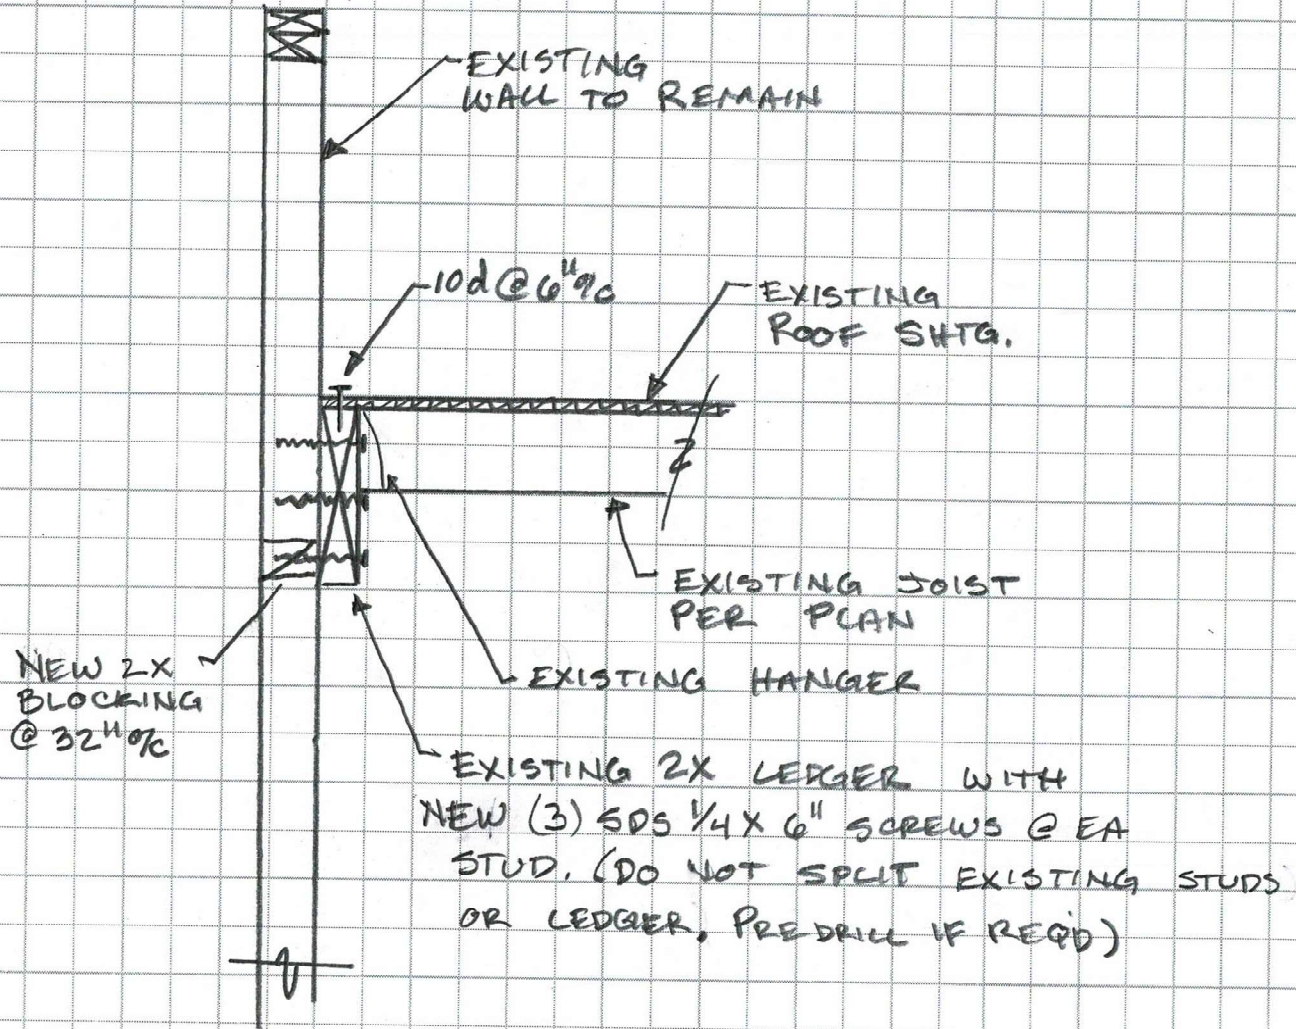 EXISTING
WALL TO REMAIN
10d @ 6" o/c
EXISTING
ROOF SHTG.
EXISTING JOIST
PER PLAN
EXISTING HANGER
NEW 2X
BLOCKING
@ 32" o/c
EXISTING 2X LEDGER WITH
NEW (3) SDS 1/4 X 6" SCREWS @ EA
STUD. (DO NOT SPLIT EXISTING STUDS
OR LEDGER, PREDRILL IF REQD)